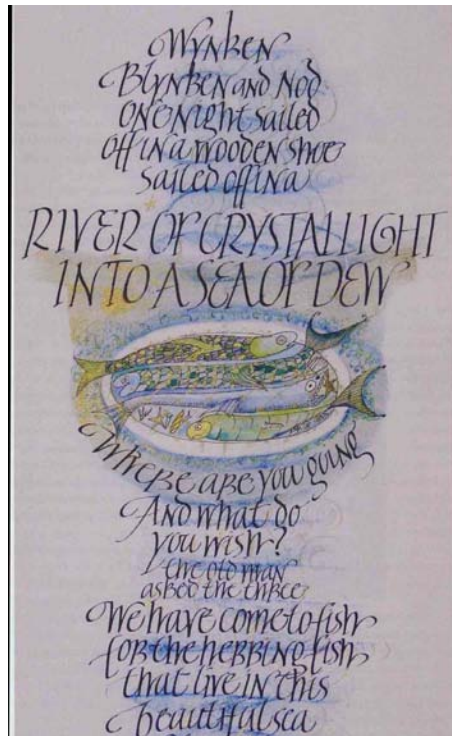 Wynken
Blynken and Nod
one night sailed
off in a wooden shoe
sailed off in a
RIVER OF CRYSTAL LIGHT
INTO A SEA OF DEW
Where are you going
And what do
you wish?
the old man
asked the three
We have come to fish
for the herring fish
that live in this
beautiful sea